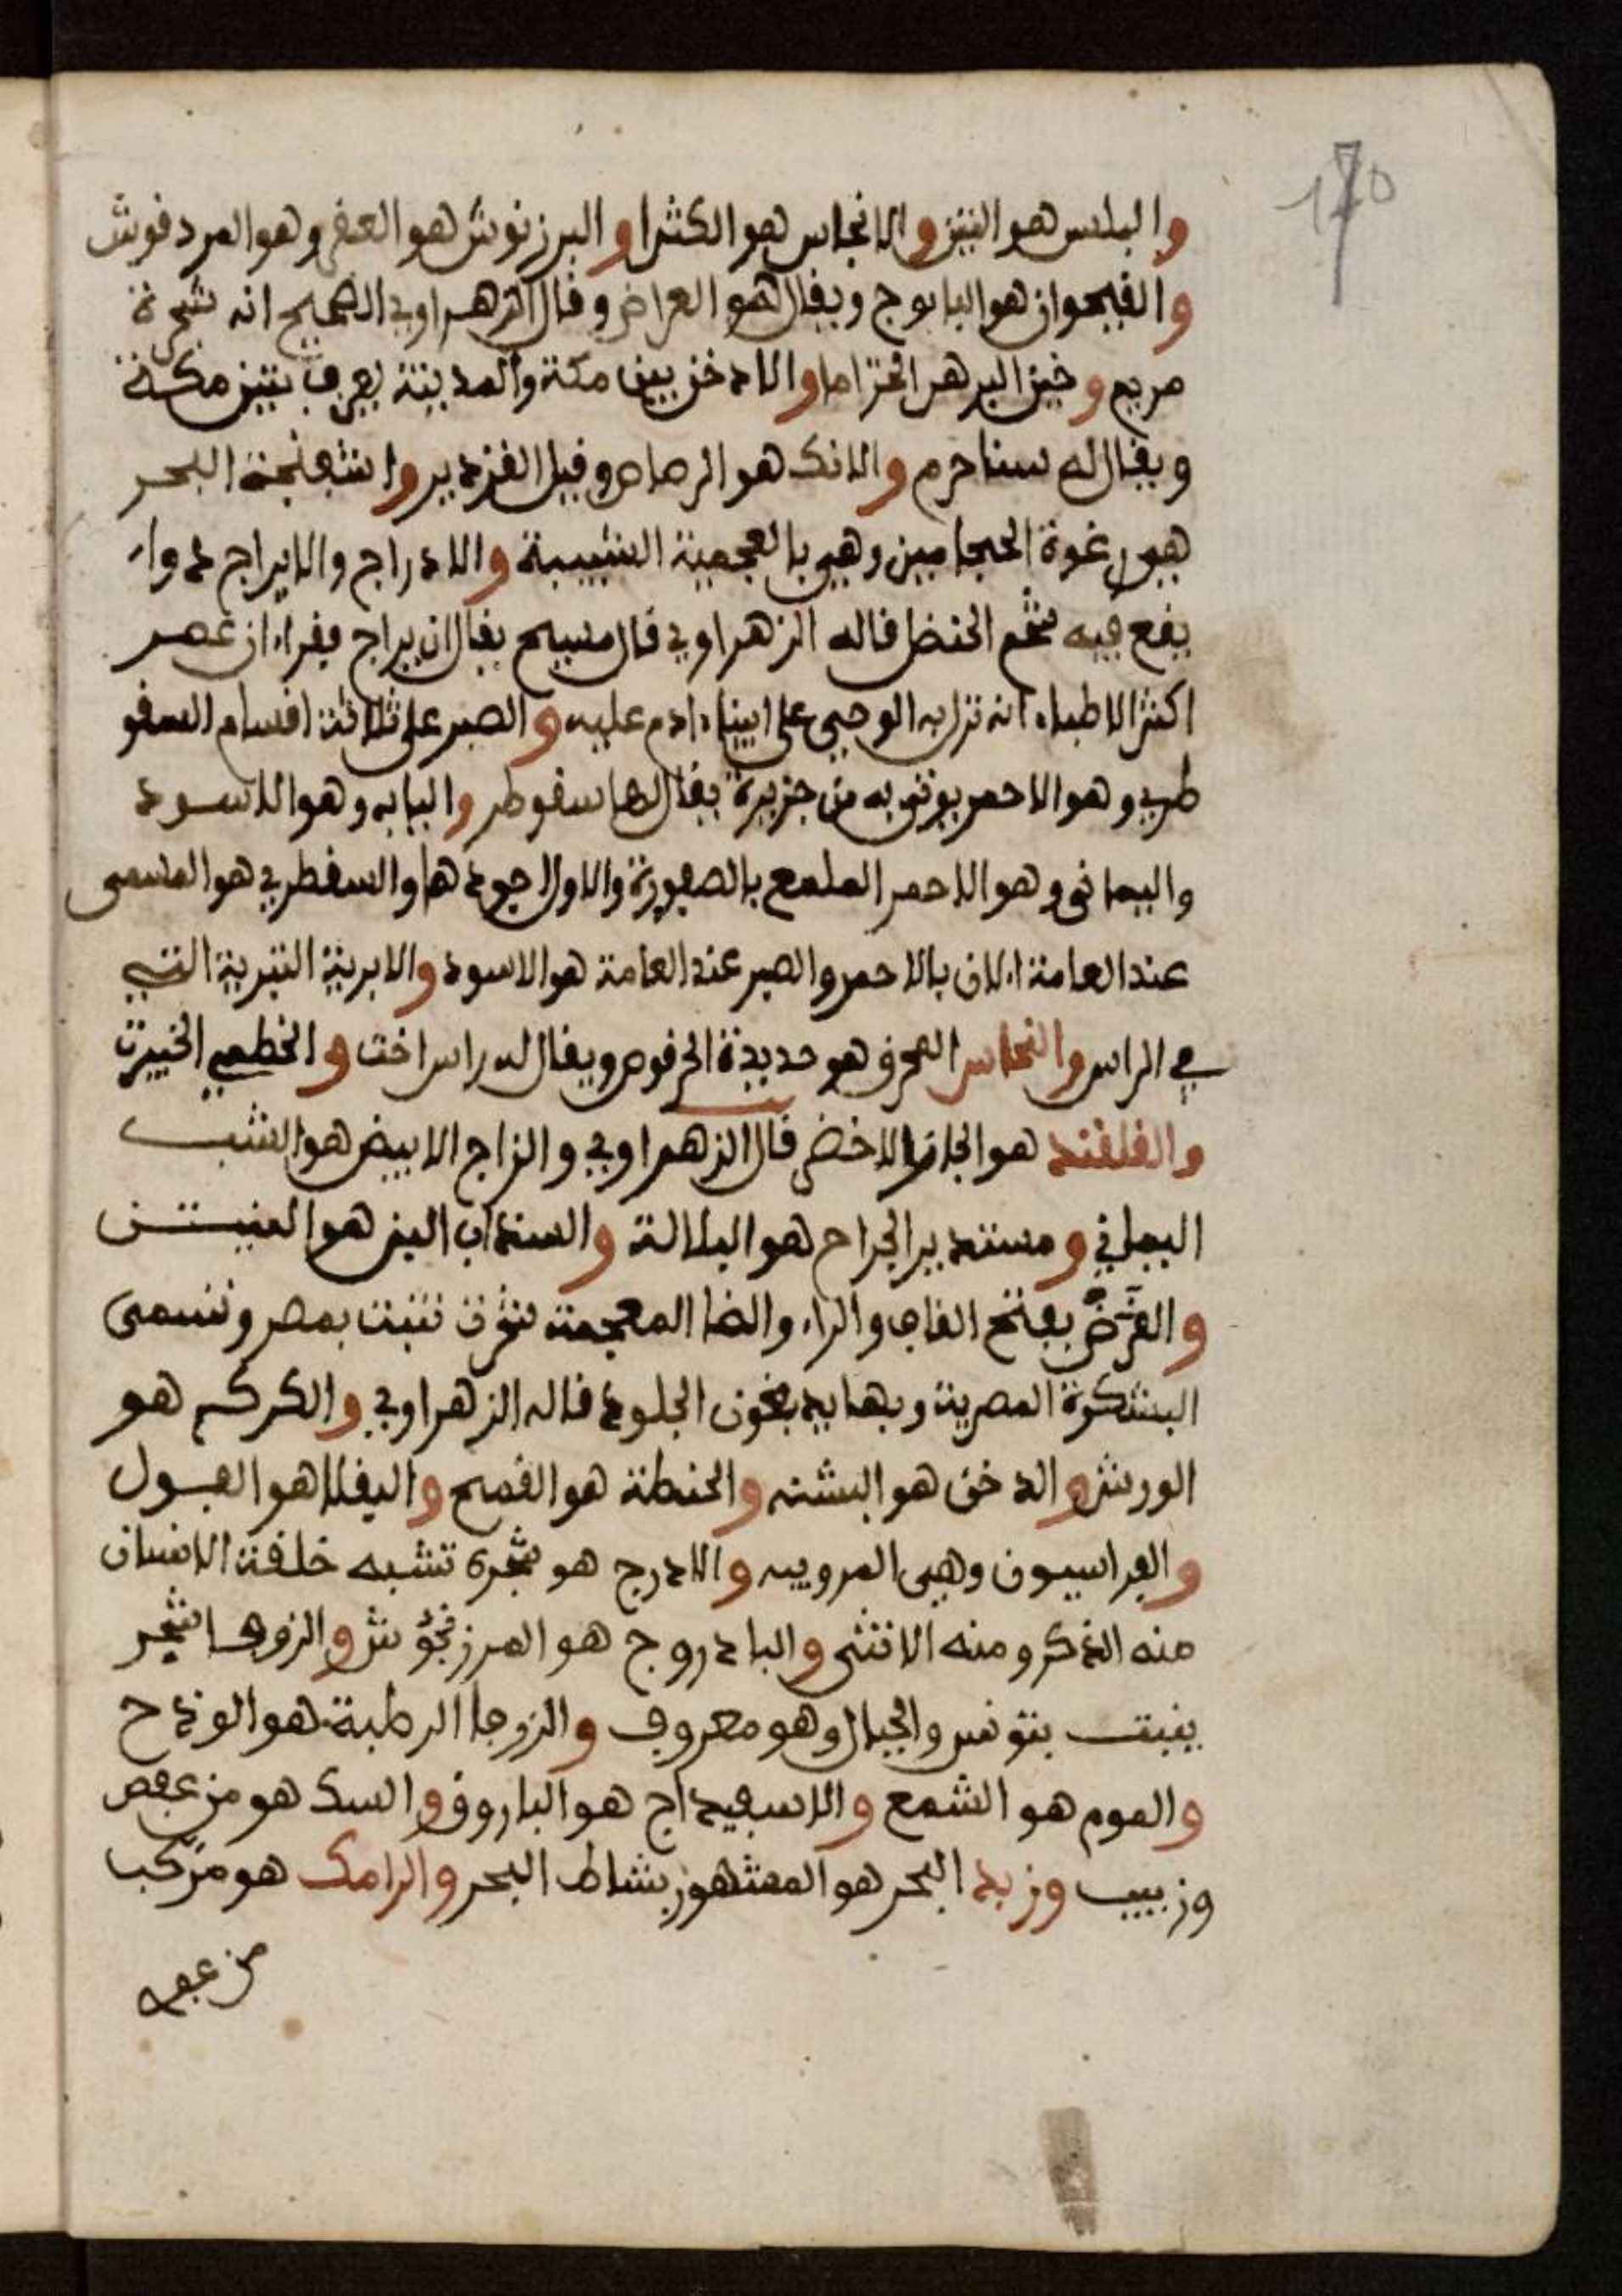 170
والبلس هو التين والانجاس هو الكمثرا والبرزنوش هو العفي وهو المردقوش
والقيحوان هو البابوج ويقال هو العراض وقال الزهراوي الصحيح انه شجرة
مريم وخير البر هو الخزاما والاذخر بين مكة والمدينة يعرف بتبن مكة
ويقال له سنا حرم والانك هو الرصاص وقيل القزدير واشبعنجة البحر
هي رغوة الحجامين وهي بالعجمية الشيبة والادراج والايراج دواء
يقع فيه شحم الحنظل قاله الزهراوي قال مسيح يقال ان يراج فقراء ان عصر
اكثر الاطباء انه نزل به الوحي على ابينا ءادم عليه والصبر على ثلاثة اقسام السقو
طري وهو الاحمر يوتى به من جزيرة يقال لها سقوطر والبابه وهو الاسود
واليماني وهو الاحمر الملمع بالصفورة والاول اجودها والسقطري هو المسمى
عند العامة الان بالاحمر والصبر عند العامة هو الاسود والابرية التبرية التي
في الراس والنحاس المحرق هو حديدة الحرقوص ويقال له راسراخت والخطمي الخبيزت
والقلقند هو الجاز الاخضر قال الزهراوي والزاج الابيض هو الشب
اليماني ومستدير الجراح هو البلالة والسنداب البر هو الفيتن
والقرض بفتح القاف والراء والضا المعجمة شجرة تنبت بمصر وتسمى
البشكرة المصرية وبها يدبغون الجلود قاله الزهراوي والكركم هو
الورس والدخن هو البشنه والحنطة هو القمح واليقلا هو الفول
والفراسيون وهي المرويه والادرج هو شجرة تشبه خلقة الانسان
منه الذكر ومنه الانثى والبادروج هو المرزنجوش والزوفا شجر
ينبت بتونس والجبال وهو معروف والزوفا الرطبة هو الوذح
والموم هو الشمع والاسفيداج هو الباروق والسك هو من عفص
وزبيب وزبد البحر هو المشهور بشاط البحر والرامك هو مركب
من عفص